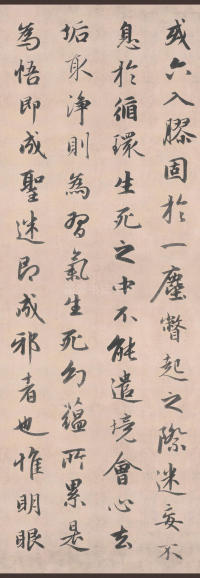 或六入膠固於一塵瞥起之際迷妄不
息於循環生死之中不能遣境會心去
垢取淨則為習氣生死幻蘊所累是
為悟即成聖迷即成邪者也惟明眼